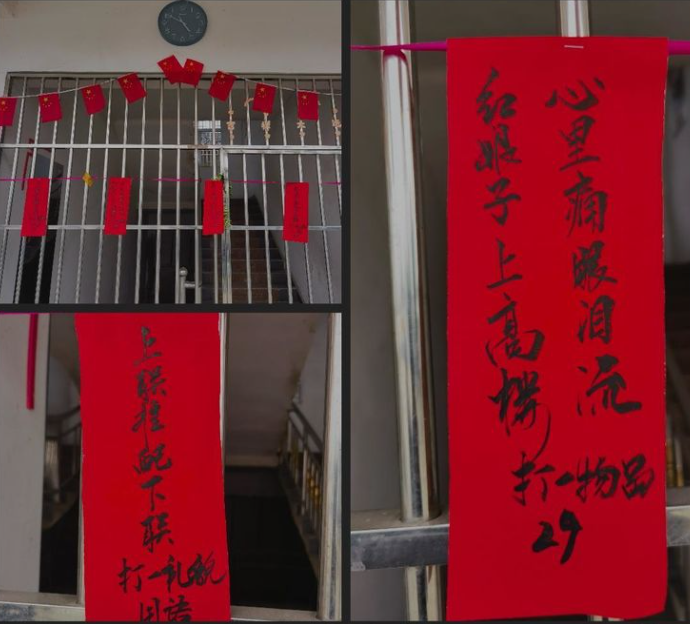 上联难配下联
打一礼貌
用语
红娘子上高楼
心里痛眼泪流
打一物品
29